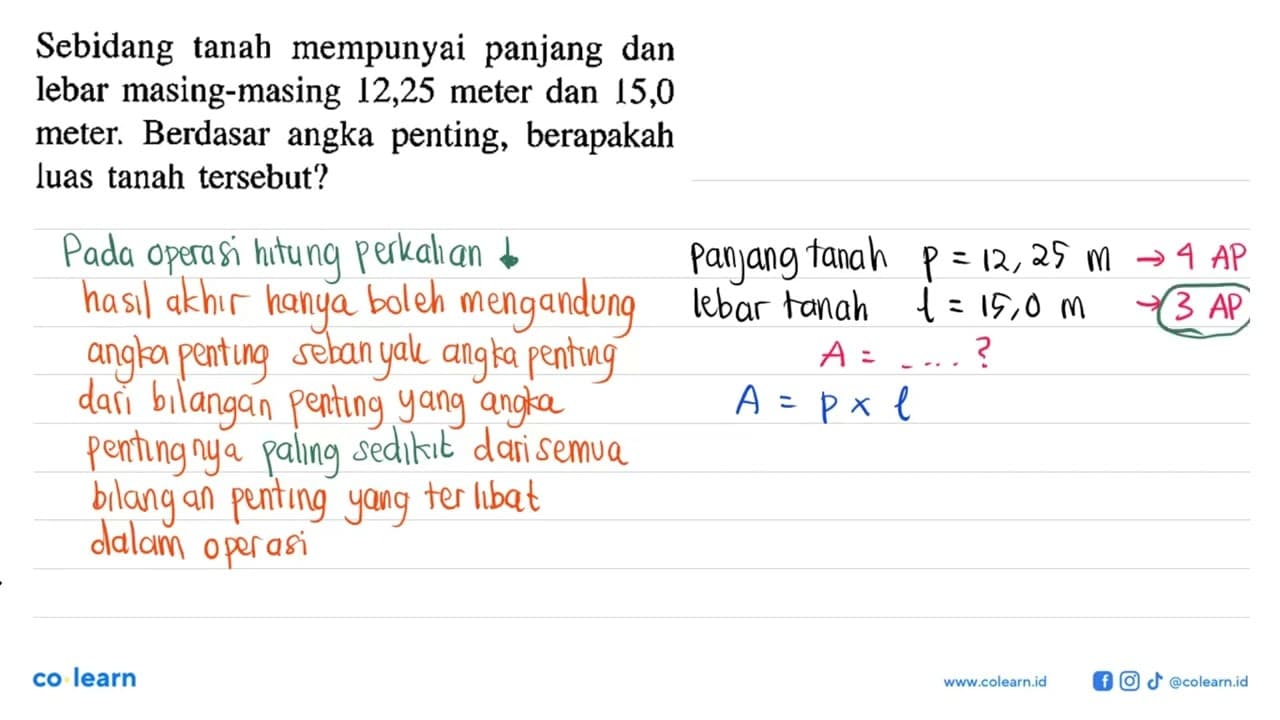 Sebidang tanah mempunyai panjang dan
lebar masing-masing 12,25 meter dan 15,0
meter. Berdasar angka penting, berapakah
luas tanah tersebut?
Pada operasi hitung perkalian ↓
hasil akhir hanya boleh mengandung
angka penting sebanyak angka penting
dari bilangan penting yang angka
pentingnya paling sedikit dari semua
bilangan penting yang terlibat
dalam operasi
panjang tanah p = 12,25 m → 4 AP
lebar tanah l = 15,0 m → 3 AP
A = ....?
A = p x l
co learn
www.colearn.id
@colearn.id